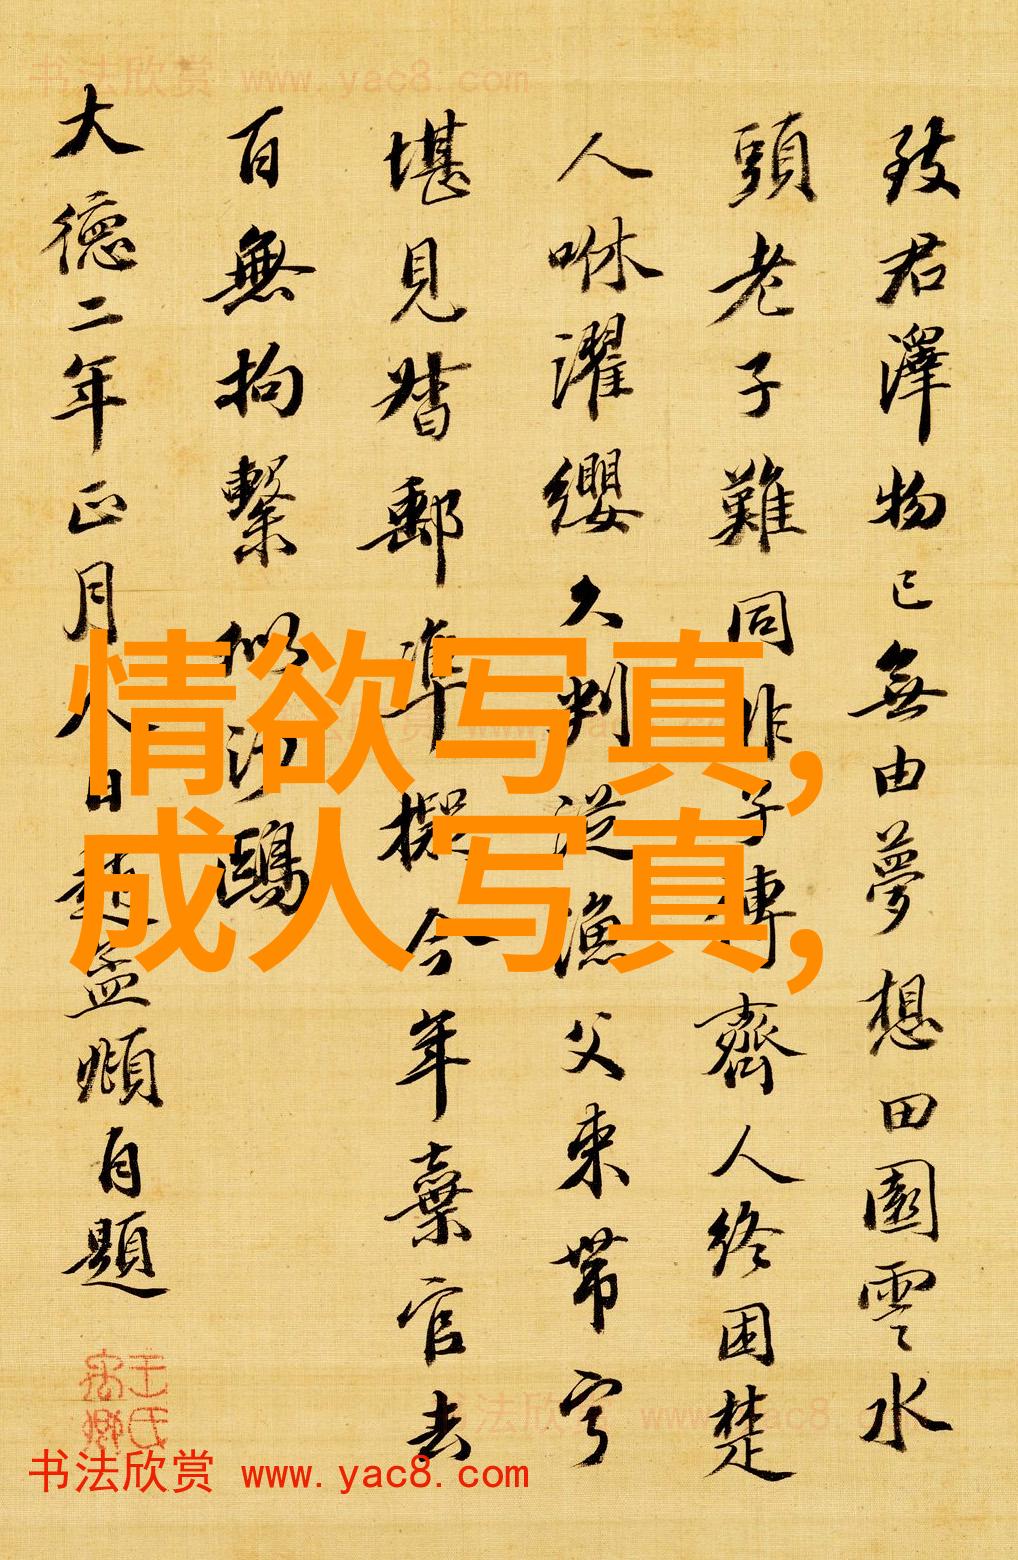 书法欣赏 www.yac8.com
致君澤物已無由夢想田園雲水
頭老子難同非子傳齊人終困楚
人咻濯纓久判從漁父束帶寧
堪見督郵準擬今年棄官去
百無拘繫似沙鷗
大德二年正月人日趙孟頫自題
情欲写真,
成人写真,
王氏禹卿
书法欣赏 www.yac8.com